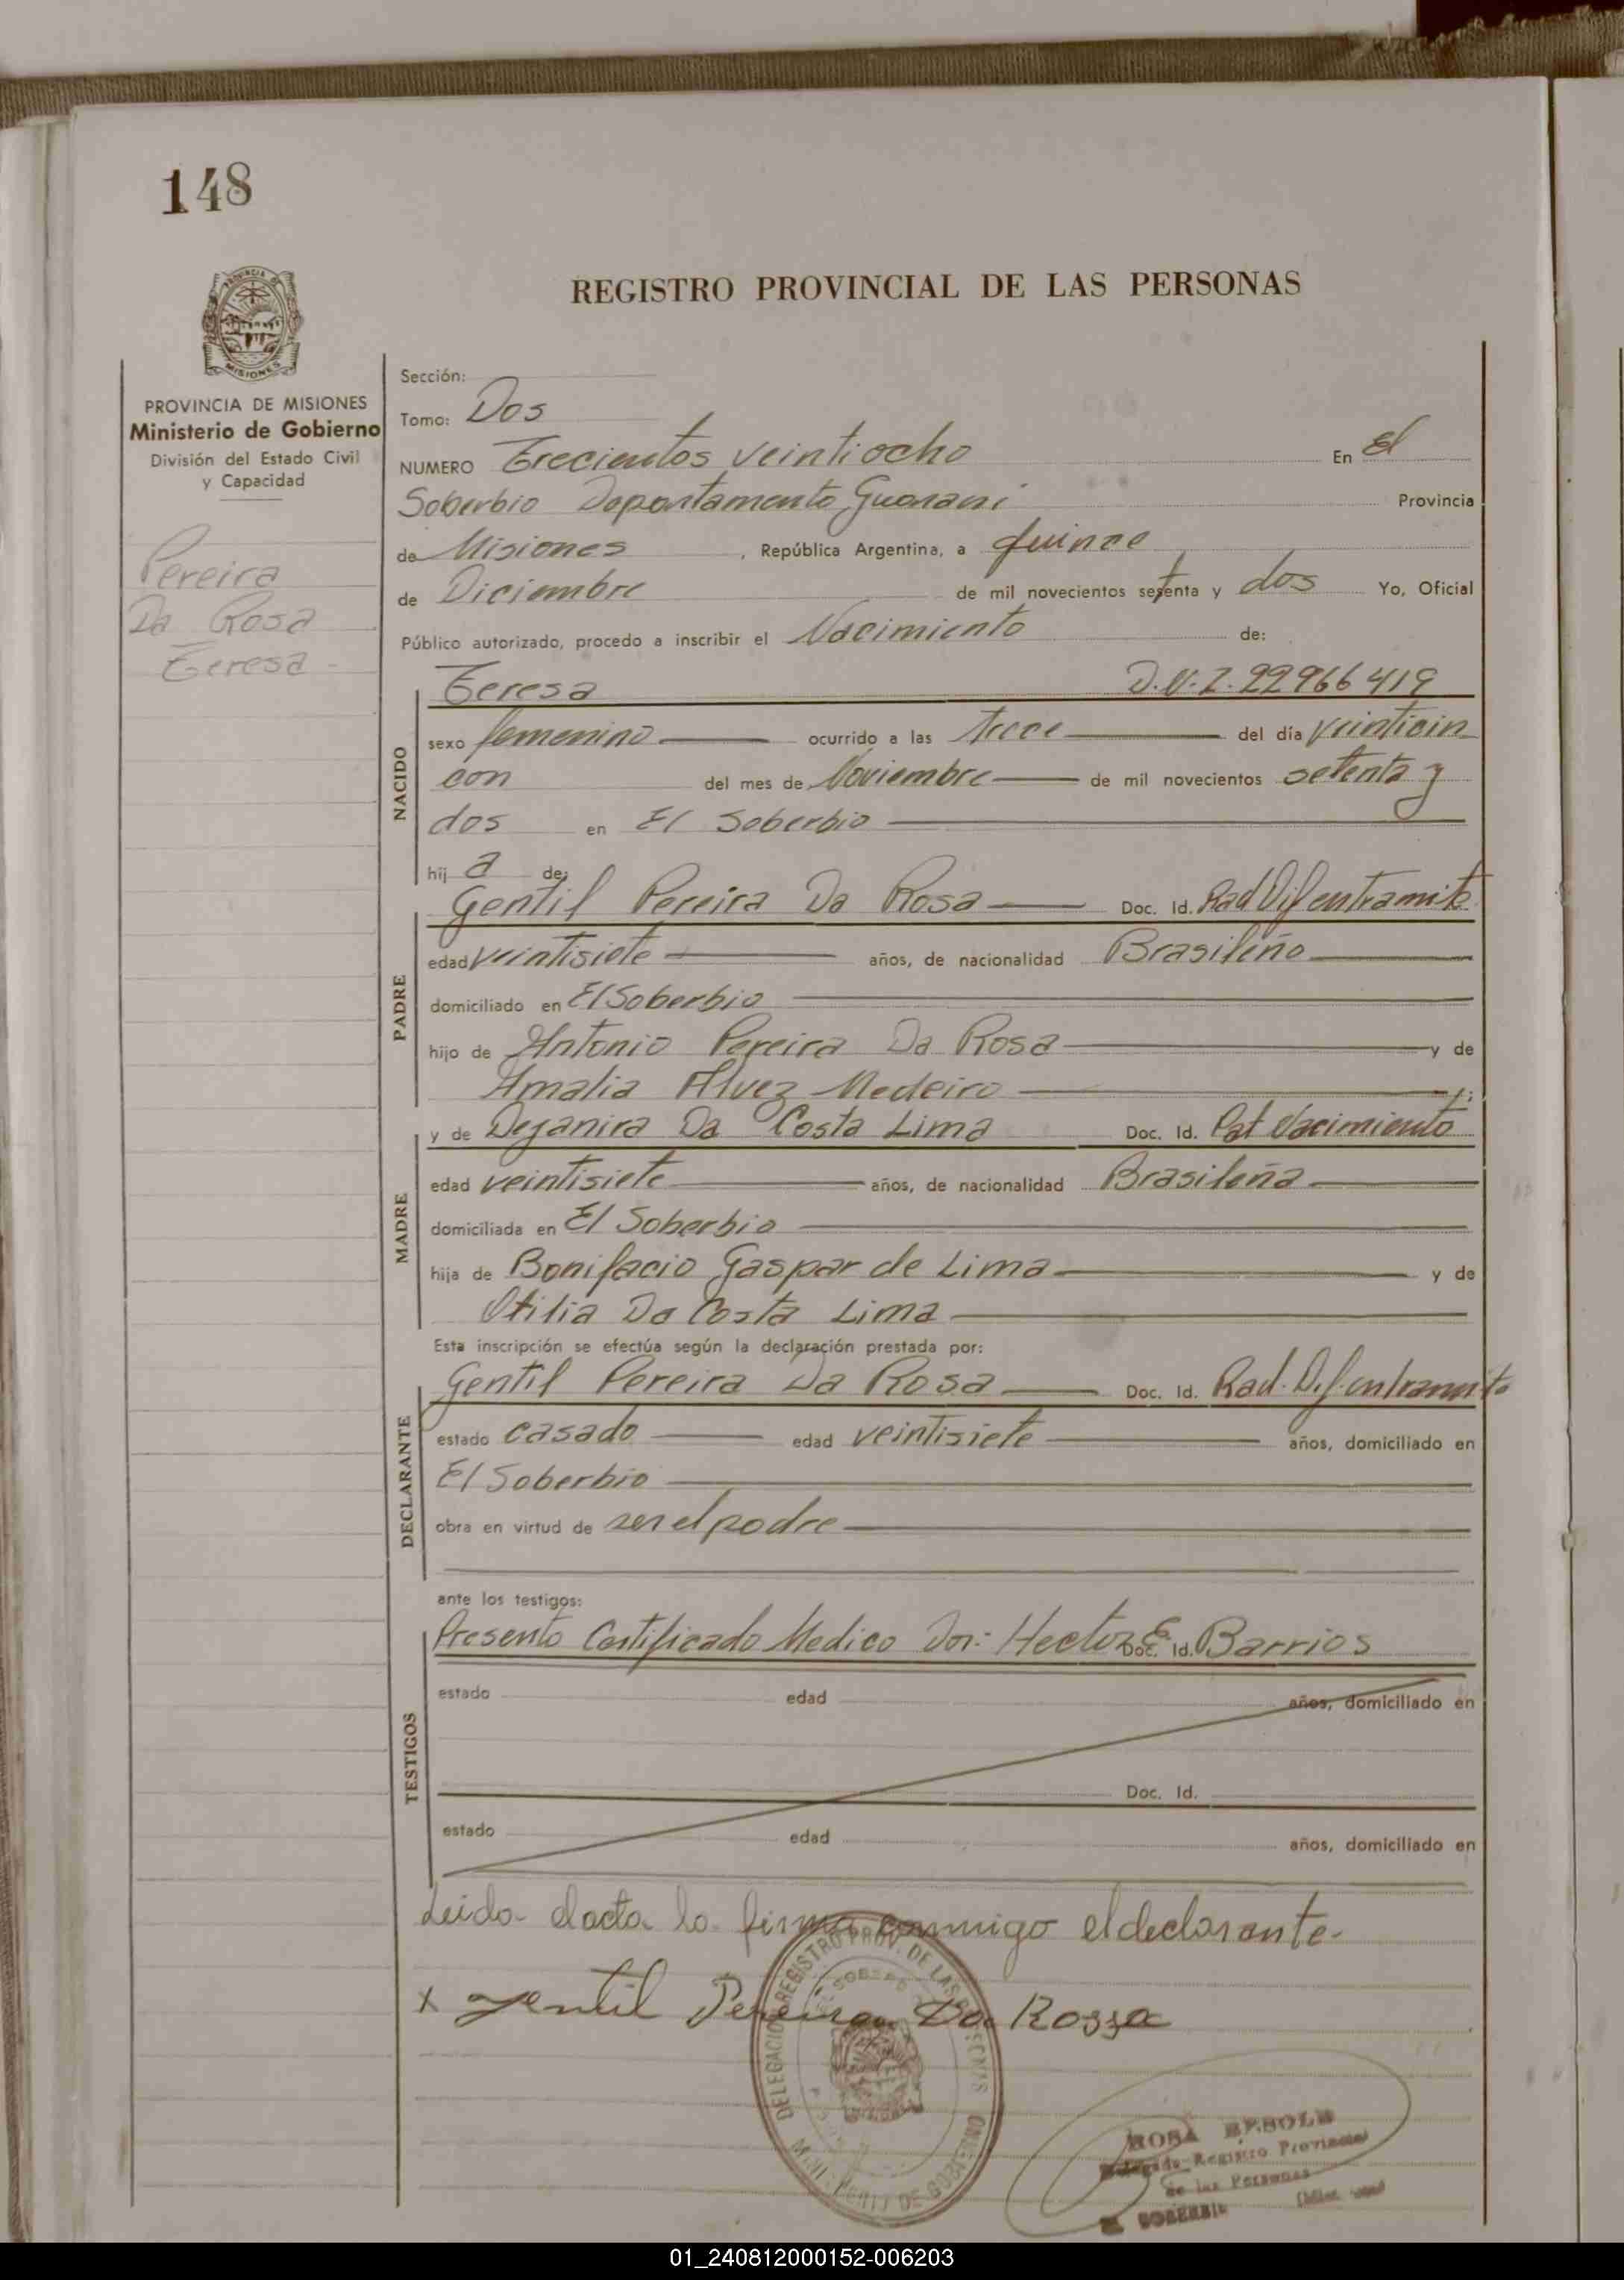 148
REGISTRO PROVINCIAL DE LAS PERSONAS
PROVINCIA
MISIONES
PROVINCIA DE MISIONES
Ministerio de Gobierno
División del Estado Civil
y Capacidad
Pereira
Da Rosa
Teresa -
Sección:
Tomo: Dos
NUMERO Trecientos veintiocho En El
Soberbio Departamento Guarani Provincia
de Misiones, República Argentina, a quince
de Diciembre de mil novecientos setenta y dos Yo, Oficial
Público autorizado, procedo a inscribir el Nacimiento de:
NACIDO
Teresa D.N.I. 22966419
sexo femenino ocurrido a las trece del día veinticin
con del mes de Noviembre de mil novecientos setenta y
dos en El Soberbio
hij a de:
PADRE
Gentil Pereira Da Rosa Doc. Id. Rad Dif en tramite
edad veintisiete años, de nacionalidad Brasileño
domiciliado en El Soberbio
hijo de Antonio Pereira Da Rosa y de
Amalia Alvez Medeiro
MADRE
y de Deganira Da Costa Lima Doc. Id. Pat Nacimiento
edad veintisiete años, de nacionalidad Brasileña
domiciliada en El Soberbio
hija de Bonifacio Gaspar de Lima y de
Otilia Da Costa Lima
Esta inscripción se efectúa según la declaración prestada por:
DECLARANTE
Gentil Pereira Da Rosa Doc. Id. Rad. Dif. en tramite
estado casado edad veintisiete años, domiciliado en
El Soberbio
obra en virtud de ser el padre
ante los testigos:
TESTIGOS
Presento Certificado Medico Dor: Hector E. Doc. Id. Barrios
estado edad años, domiciliado en
Doc. Id.
estado edad años, domiciliado en
Leida el acta la firma conmigo el declarante-
x Gentil Pereira Da Rossa
DELEGACION REGISTRO PROV. DE LAS
ROSA
Registro Provincial
de las Personas
SOBERBIO
01_240812000152-006203